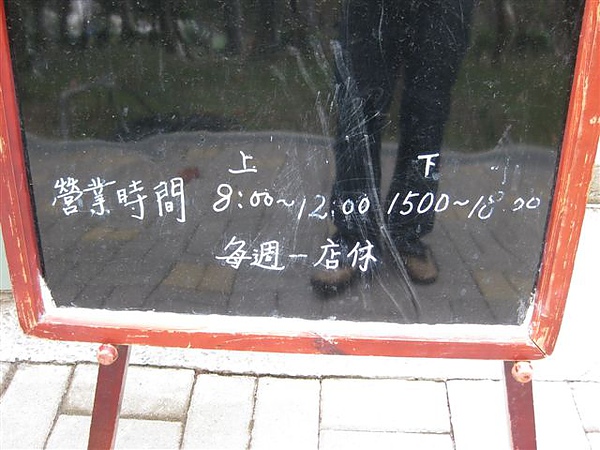 上 下
營業時間 8:00~12:00 1500~18:00
每週一店休